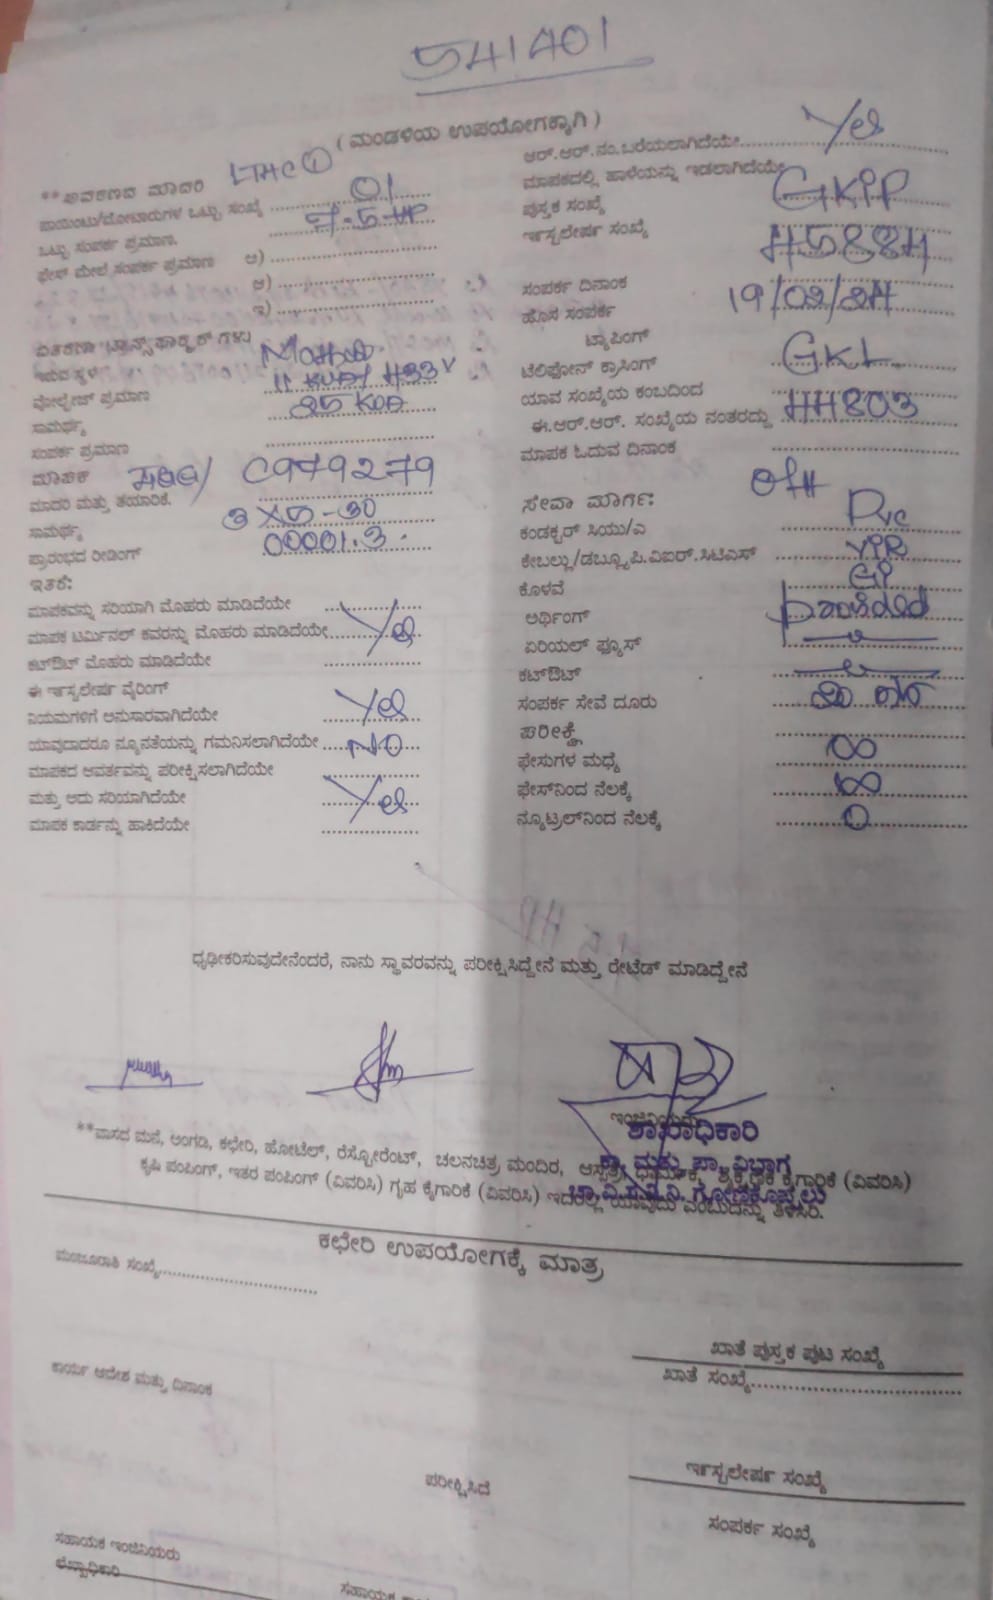 541401
( ಮಂಡಳಿಯ ಉಪಯೋಗಕ್ಕಾಗಿ )
ಮಾದರಿ
ಪಾಯಿಂಟು/ಮೋಟಾರುಗಳ ಒಟ್ಟು ಸಂಖ್ಯೆ 01
ಒಟ್ಟು ಸಂಪರ್ಕ ಪ್ರಮಾಣ. 7.5-HP
ಫೇಸ್ ಮೇಲೆ ಸಂಪರ್ಕ ಪ್ರಮಾಣ ಅ)
ಆ)
ಇ)
ವೋಲ್ಟೇಜ್ ಪ್ರಮಾಣ
ಸಾಮರ್ಥ್ಯ 25 KVA
ಸಂಪರ್ಕ ಪ್ರಮಾಣ
ಮಾಪಕ C979279
ಮಾದರಿ ಮತ್ತು ತಯಾರಿಕೆ.
ಸಾಮರ್ಥ್ಯ 3 X 5-30
ಪ್ರಾರಂಭದ ರೀಡಿಂಗ್ 00001.3
ಇತರೆ:
ಮಾಪಕವನ್ನು ಸರಿಯಾಗಿ ಮೊಹರು ಮಾಡಿದೆಯೇ
ಮಾಪಕ ಟರ್ಮಿನಲ್ ಕವರನ್ನು ಮೊಹರು ಮಾಡಿದೆಯೇ Yes
ಕಟ್‌ಔಟ್ ಮೊಹರು ಮಾಡಿದೆಯೇ
ಈ ಇನ್ಸ್ಟಲೇಷನ್ ವೈರಿಂಗ್
ನಿಯಮಗಳಿಗೆ ಅನುಸಾರವಾಗಿದೆಯೇ Yes
ಯಾವುದಾದರೂ ನ್ಯೂನತೆಯನ್ನು ಗಮನಿಸಲಾಗಿದೆಯೇ NO
ಮಾಪಕದ ಆವರ್ತವನ್ನು ಪರೀಕ್ಷಿಸಲಾಗಿದೆಯೇ
ಮತ್ತು ಅದು ಸರಿಯಾಗಿದೆಯೇ Yes
ಮಾಪಕ ಕಾರ್ಡನ್ನು ಹಾಕಿದೆಯೇ
ಆರ್.ಆರ್.ನಂ.ಬರೆಯಲಾಗಿದೆಯೇ Yes
ಮಾಪಕದಲ್ಲಿ ಹಾಳೆಯನ್ನು ಇಡಲಾಗಿದೆಯೇ
ಪುಸ್ತಕ ಸಂಖ್ಯೆ GKIP
ಇನ್ಸ್ಟಲೇಷನ್ ಸಂಖ್ಯೆ 45884
ಸಂಪರ್ಕ ದಿನಾಂಕ 19/02/24
ಹೊಸ ಸಂಪರ್ಕ
ಟ್ಯಾಪಿಂಗ್
ಟೆಲಿಫೋನ್ ಕ್ರಾಸಿಂಗ್ GKL
ಯಾವ ಸಂಖ್ಯೆಯ ಕಂಬದಿಂದ
ಈ.ಆರ್.ಆರ್. ಸಂಖ್ಯೆಯ ನಂತರದ್ದು 44803
ಮಾಪಕ ಓದುವ ದಿನಾಂಕ
ಸೇವಾ ಮಾರ್ಗ: O/H
ಕಂಡಕ್ಟರ್ ಸಿಯು/ಎ Pvc
ಕೇಬಲ್ಲು/ಡಬ್ಲ್ಯೂ.ಪಿ.ವಿಐಆರ್.ಸಿಟಿಎಸ್ VIR
ಕೊಳವೆ GI
ಅರ್ಥಿಂಗ್ provided
ಏರಿಯಲ್ ಫ್ಯೂಸ್
ಕಟ್‌ಔಟ್
ಸಂಪರ್ಕ ಸೇವೆ ದೂರು
ಪರೀಕ್ಷೆ
ಫೇಸುಗಳ ಮಧ್ಯೆ ∞
ಫೇಸ್‌ನಿಂದ ನೆಲಕ್ಕೆ ∞
ನ್ಯೂಟ್ರಲ್‌ನಿಂದ ನೆಲಕ್ಕೆ 0
ಧೃಢೀಕರಿಸುವುದೇನೆಂದರೆ, ನಾನು ಸ್ಥಾವರವನ್ನು ಪರೀಕ್ಷಿಸಿದ್ದೇನೆ ಮತ್ತು ರೇಟೆಡ್ ಮಾಡಿದ್ದೇನೆ
ಶಾಖಾಧಿಕಾರಿ
**ವಾಸದ ಮನೆ, ಅಂಗಡಿ, ಕಛೇರಿ, ಹೋಟೆಲ್, ರೆಸ್ಟೋರೆಂಟ್, ಚಲನಚಿತ್ರ ಮಂದಿರ, ಆಸ್ಪತ್ರೆ, ಕೈಗಾರಿಕೆ (ವಿವರಿಸಿ)
ಕೃಷಿ ಪಂಪಿಂಗ್, ಇತರ ಪಂಪಿಂಗ್ (ವಿವರಿಸಿ) ಗೃಹ ಕೈಗಾರಿಕೆ (ವಿವರಿಸಿ) ಇದರಲ್ಲಿ ಯಾವುದು ಎಂಬುದನ್ನು ತಿಳಿಸಿರಿ.
ಕಛೇರಿ ಉಪಯೋಗಕ್ಕೆ ಮಾತ್ರ
ಮಂಜೂರಾತಿ ಸಂಖ್ಯೆ
ಖಾತೆ ಪುಸ್ತಕ ಪುಟ ಸಂಖ್ಯೆ
ಖಾತೆ ಸಂಖ್ಯೆ
ಕಾರ್ಯ ಆದೇಶ ಮತ್ತು ದಿನಾಂಕ
ಪರೀಕ್ಷಿಸಿದೆ
ಇನ್ಸ್ಟಲೇಷನ್ ಸಂಖ್ಯೆ
ಸಂಪರ್ಕ ಸಂಖ್ಯೆ
ಸಹಾಯಕ ಇಂಜಿನಿಯರು
ಲೆಖ್ಖಾಧಿಕಾರಿ